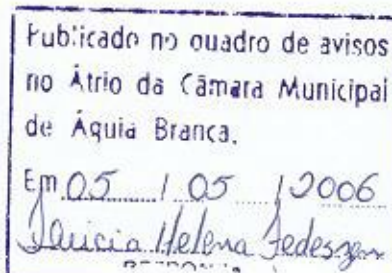 Publicado no quadro de avisos
no Átrio da Câmara Municipal
de Águia Branca.
Em 05 / 05 / 2006
Helena